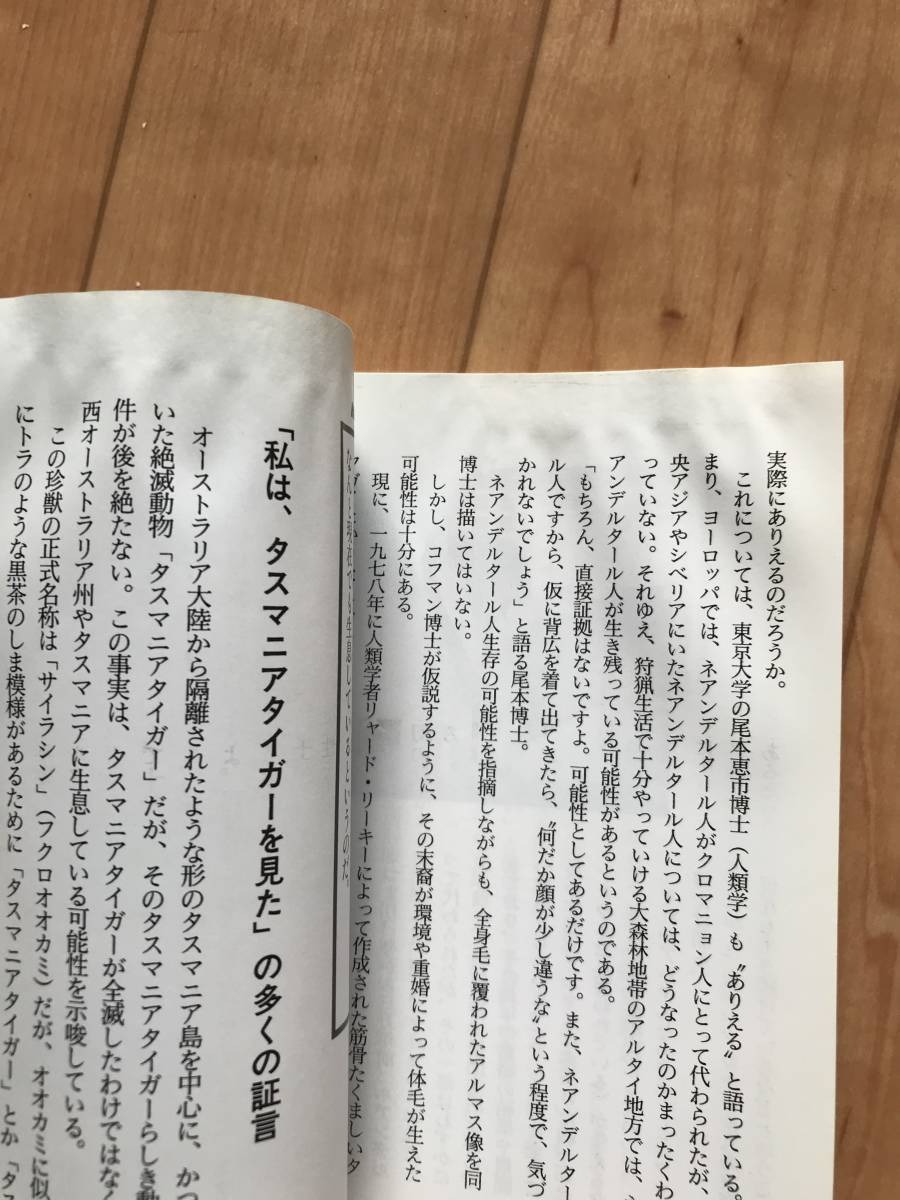 実際にありえるのだろうか。
これについては、東京大学の尾本恵市博士（人類学）も〝ありえる〟と語っている。
まり、ヨーロッパでは、ネアンデルタール人がクロマニョン人にとって代わられたが、
央アジアやシベリアにいたネアンデルタール人については、どうなったのかまったくわ
っていない。それゆえ、狩猟生活で十分やっていける大森林地帯のアルタイ地方では、
アンデルタール人が生き残っている可能性があるというのである。
「もちろん、直接証拠はないですよ。可能性としてあるだけです。また、ネアンデルター
ル人ですから、仮に背広を着て出てきたら、〝何だか顔が少し違うな〟という程度で、気づ
かれないでしょう」と語る尾本博士。
ネアンデルタール人生存の可能性を指摘しながらも、全身毛に覆われたアルマス像を同
博士は描いてはいない。
しかし、コフマン博士が仮説するように、その末裔が環境や重婚によって体毛が生えた
可能性は十分にある。
現に、一九七八年に人類学者リャード・リーキーによって作成された筋骨たくましいタ
「私は、タスマニアタイガーを見た」の多くの証言
オーストラリア大陸から隔離されたような形のタスマニア島を中心に、かつ
いた絶滅動物「タスマニアタイガー」だが、そのタスマニアタイガーらしき動
件が後を絶たない。この事実は、タスマニアタイガーが全滅したわけではなく
西オーストラリア州やタスマニアに生息している可能性を示唆している。
この珍獣の正式名称は「サイラシン」（フクロオオカミ）だが、オオカミに似
にトラのような黒茶のしま模様があるために「タスマニアタイガー」とか「タス